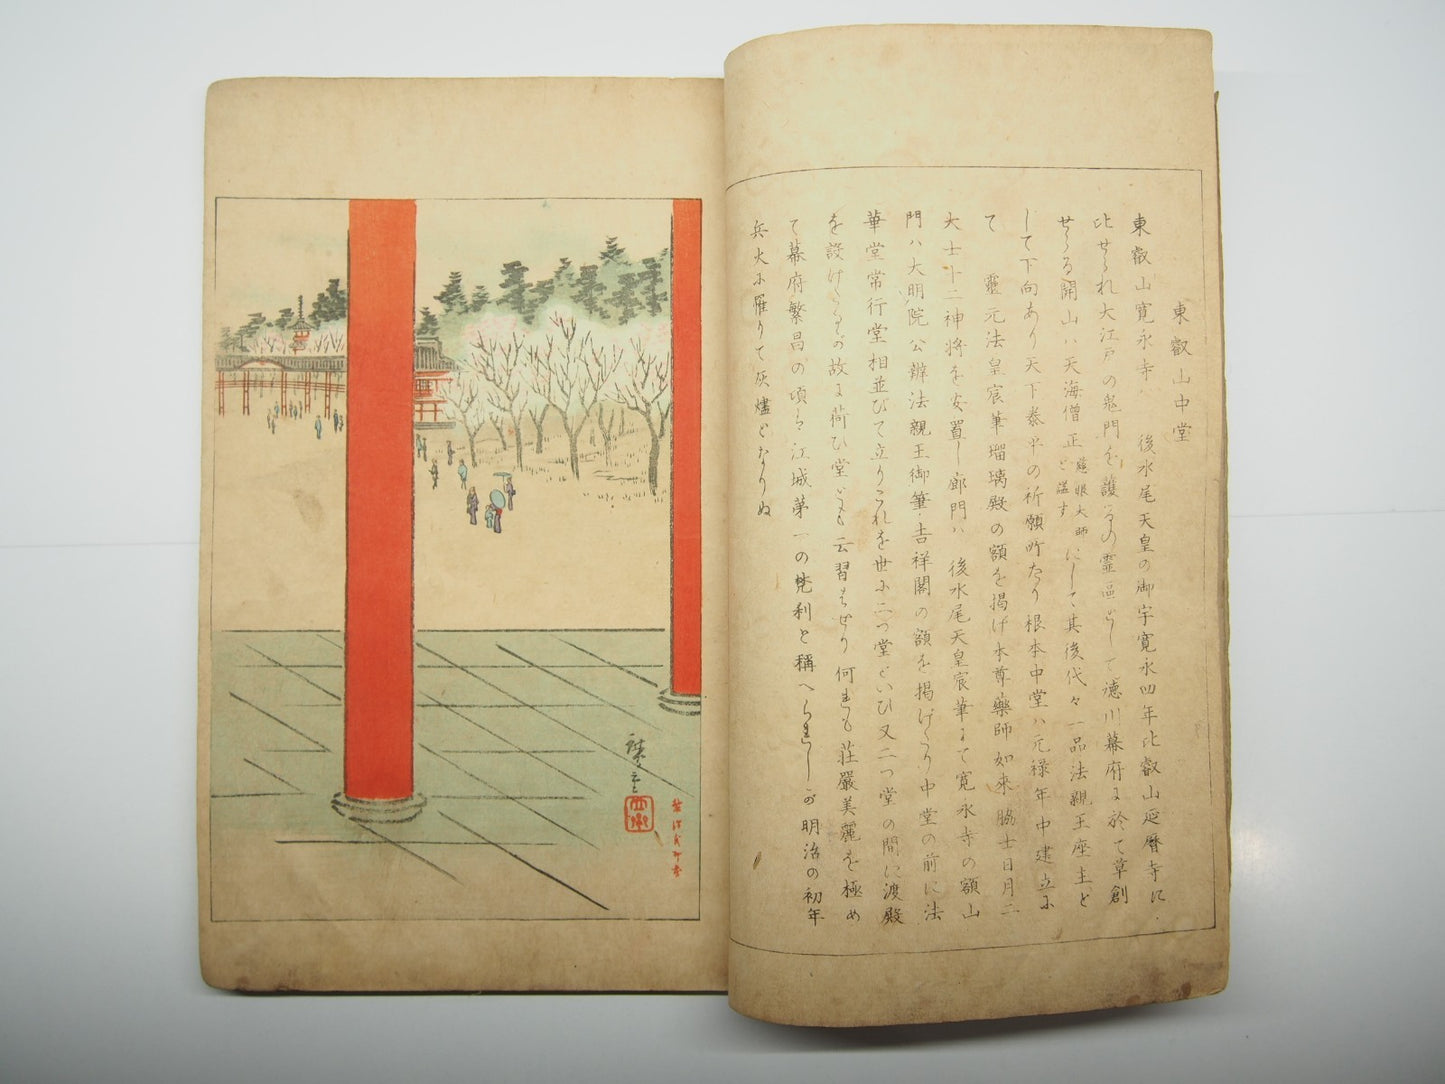 東叡山中堂
東叡山寛永寺ハ 後水尾天皇の御宇寛永四年比叡山延暦寺に
比せられ大江戸の鬼門を護るの霊區として徳川幕府に於て草創
せらる開山ハ天海僧正慈眼大師と謚すにして其後代々一品法親王座主と
して下向あり天下泰平の祈願所たり根本中堂ハ元禄年中建立に
て 靈元法皇宸筆瑠璃殿の額を掲げ本尊藥師如來脇士日月二
大士十二神将を安置し廊門ハ 後水尾天皇宸筆にて寛永寺の額山
門ハ大明院公辦法親王御筆吉祥閣の額を掲げたり中堂の前に法
華堂常行堂相並びて立りこれを世に二つ堂といひ又二つ堂の間に渡殿
を設けたるが故に荷ひ堂とも云習はせり何れも荘嚴美麗を極め
て幕府繁昌の頃は江城第一の梵利と稱へられしが明治の初年
兵火に罹りて灰燼となりぬ
廣重